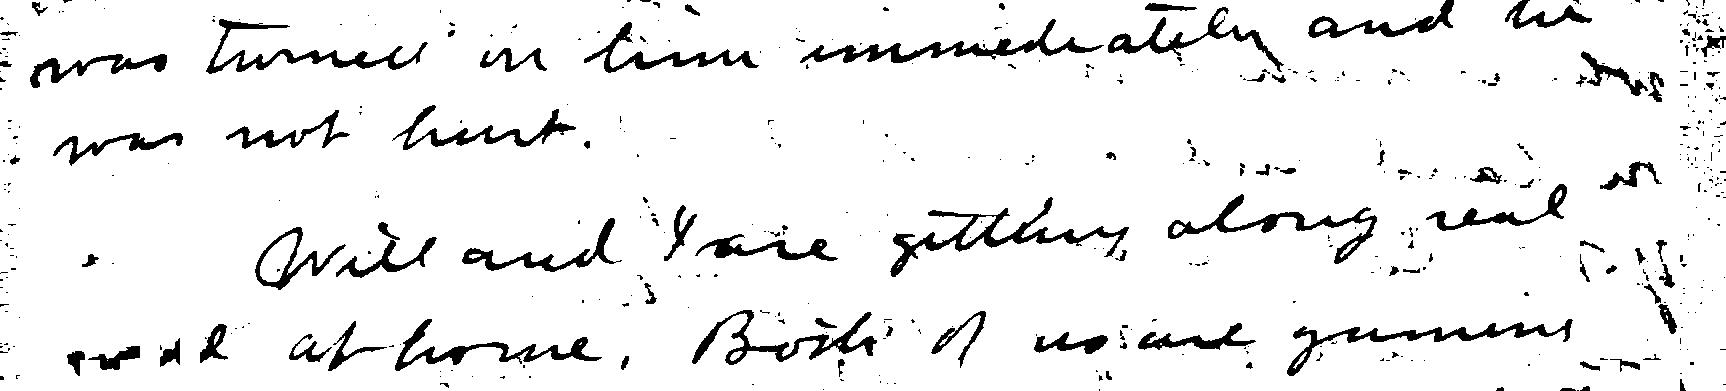 was turned on him immediately and he
was not hurt.
Will and I are getting along real
good at home. Both of us are gaining